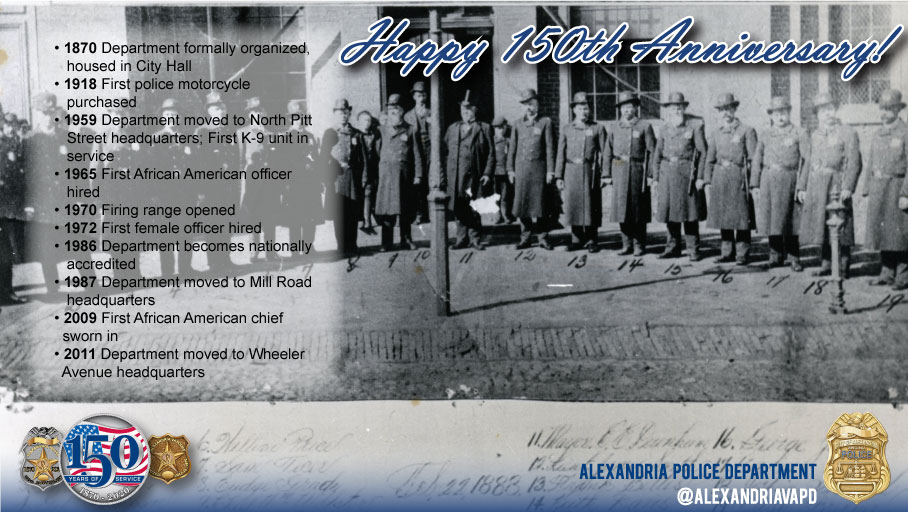 Happy 150th Anniversary!
• 1870 Department formally organized,
housed in City Hall
• 1918 First police motorcycle
purchased
• 1959 Department moved to North Pitt
Street headquarters; First K-9 unit in
service
• 1965 First African American officer
hired
• 1970 Firing range opened
• 1972 First female officer hired
• 1986 Department becomes nationally
accredited
• 1987 Department moved to Mill Road
headquarters
• 2009 First African American chief
sworn in
• 2011 Department moved to Wheeler
Avenue headquarters
8 9 10 11 12 13 14 15 16 17 18 19
11. 16.
150
YEARS OF SERVICE
1870 - 2020
ALEXANDRIA POLICE DEPARTMENT
@ALEXANDRIAVAPD
POLICE